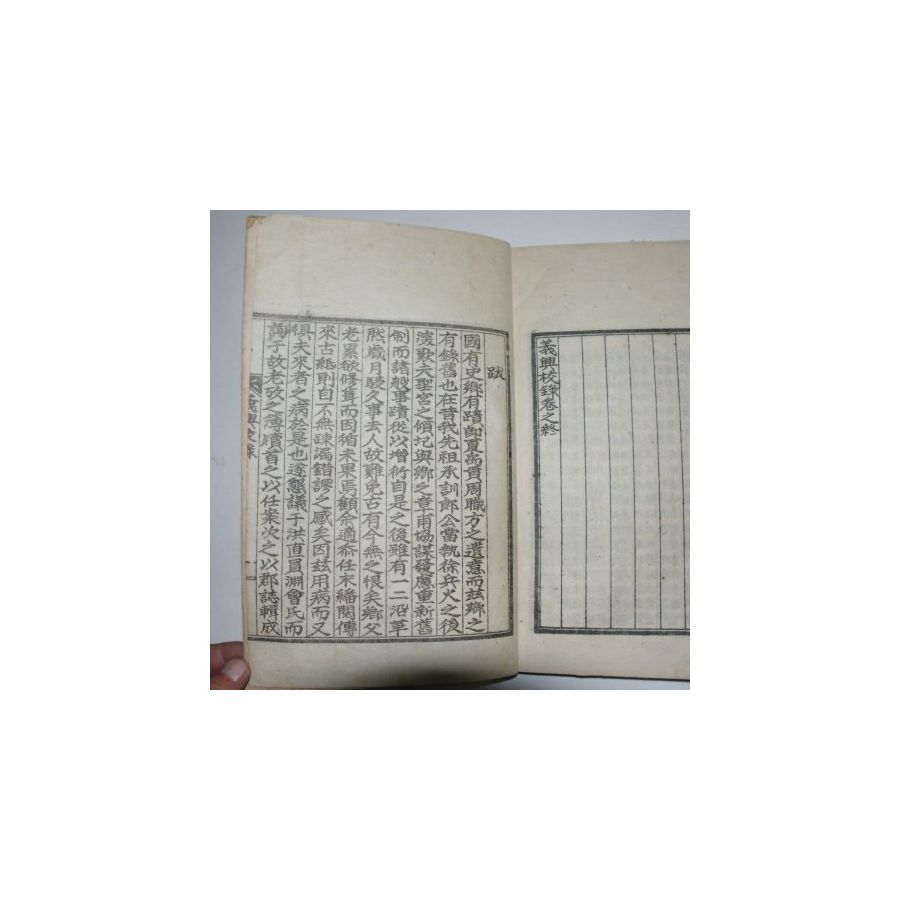 義興校錄卷之終
跋
國有史鄉有蹟郎夏禹貢周職方之遺意而玆鄉之
有錄舊也在昔我先祖承訓郎公當執徐兵火之後
深歎夫聖宮之傾圮與鄉之章甫協謀發慮重新舊
制而諸般事蹟從以增衍自是之後雖有一二沿革
然歲月寖久事去人故難免古有今無之恨矣鄉父
老累欲修葺而因循未果焉顧余適忝任末繙閱傳
來古紙則自不無疎漏錯謬之感矣因玆用病而又
惧夫來者之病於是也遂懇議于洪直員淵會氏而
詢于故老攷之簿牘首之以任案次之以郡誌輯成